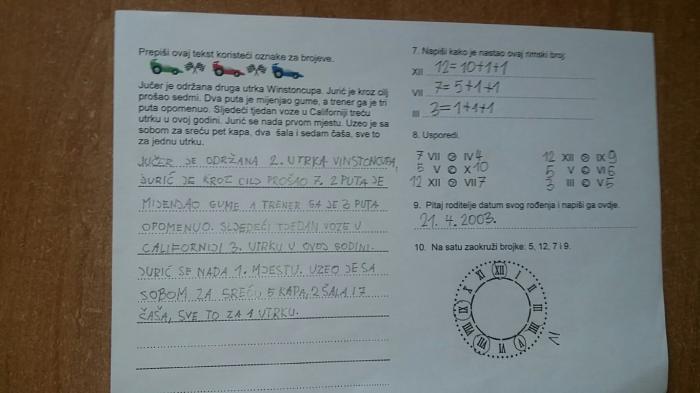 Prepiši ovaj tekst koristeći oznake za brojeve.
Jučer je održana druga utrka Winstoncupa. Jurić je kroz cilj
prošao sedmi. Dva puta je mijenjao gume, a trener ga je tri
puta opomenuo. Sljedeći tjedan voze u Californiji treću
utrku u ovoj godini. Jurić se nada prvom mjestu. Uzeo je sa
sobom za sreću pet kapa, dva šala i sedam čaša, sve to
za jednu utrku.
JUČER JE ODRŽANA 2. UTRKA VINSTONCUPA,
JURIĆ JE KROZ CILJ PROŠAO 7. 2 PUTA JE
MIJENJAO GUME A TRENER GA JE 3 PUTA
OPOMENUO. SLJEDEĆI TJEDAN VOZE U
CALIFORNIJI 3. UTRKU U OVOJ GODINI.
JURIĆ SE NADA 1. MJESTU. UZEO JE SA
SOBOM ZA SREĆU 5 KAPA, 2 ŠALA I 7
ČAŠA, SVE TO ZA 1 UTRKU.
7. Napiši kako je nastao ovaj rimski broj:
XII 12=10+1+1
VII 7=5+1+1
III 3=1+1+1
8. Usporedi.
7 VII > IV 4 12 XII > IX 9
5 V < X 10 5 V < VI 6
12 XII > VII 7 3 III < V 5
9. Pitaj roditelje datum svog rođenja i napiši ga ovdje.
21. 4. 2003.
10. Na satu zaokruži brojke: 5, 12, 7 i 9.
XII
I
II
III
IIII
IV
V
VI
VII
VIII
IX
X
XI